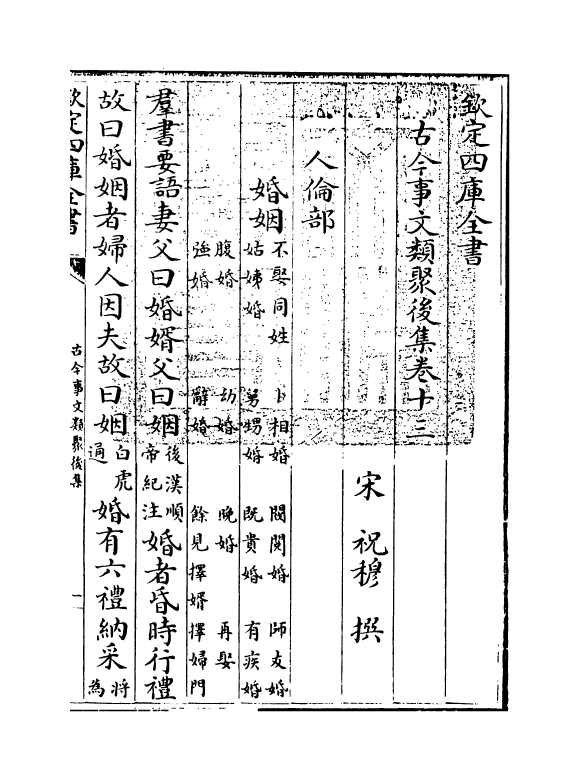 欽定四庫全書
古今事文類聚後集卷十三
宋 祝穆 撰
人倫部
婚姻
不娶同姓 卜相婚 閥閱婚 師友婚
姑姨婚 舅甥婚 既貴婚 有疾婚
腹婚 幼婚 晚婚 再娶
強婚 辭婚 餘見擇婿擇婦門
羣書要語妻父曰婚婿父曰姻後漢順帝紀注婚者昏時行禮
故曰婚姻者婦人因夫故曰姻白虎通婚有六禮納采將為
欽定四庫全書
古今事文類聚後集
一